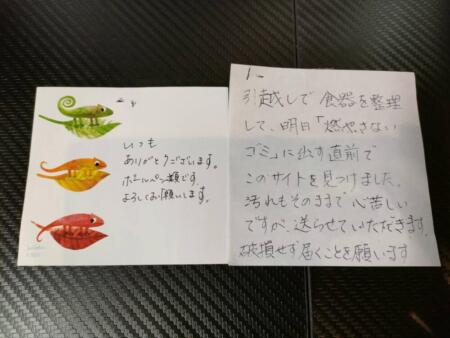 いつも
ありがとうございます。
ボールペン類です。
よろしくお願いします。
引越しで食器を整理
して、明日「燃やさない
ゴミ」に出す直前で
このサイトを見つけました。
汚れもそのままで心苦しい
ですが、送らせていただきます。
破損せず届くことを願います